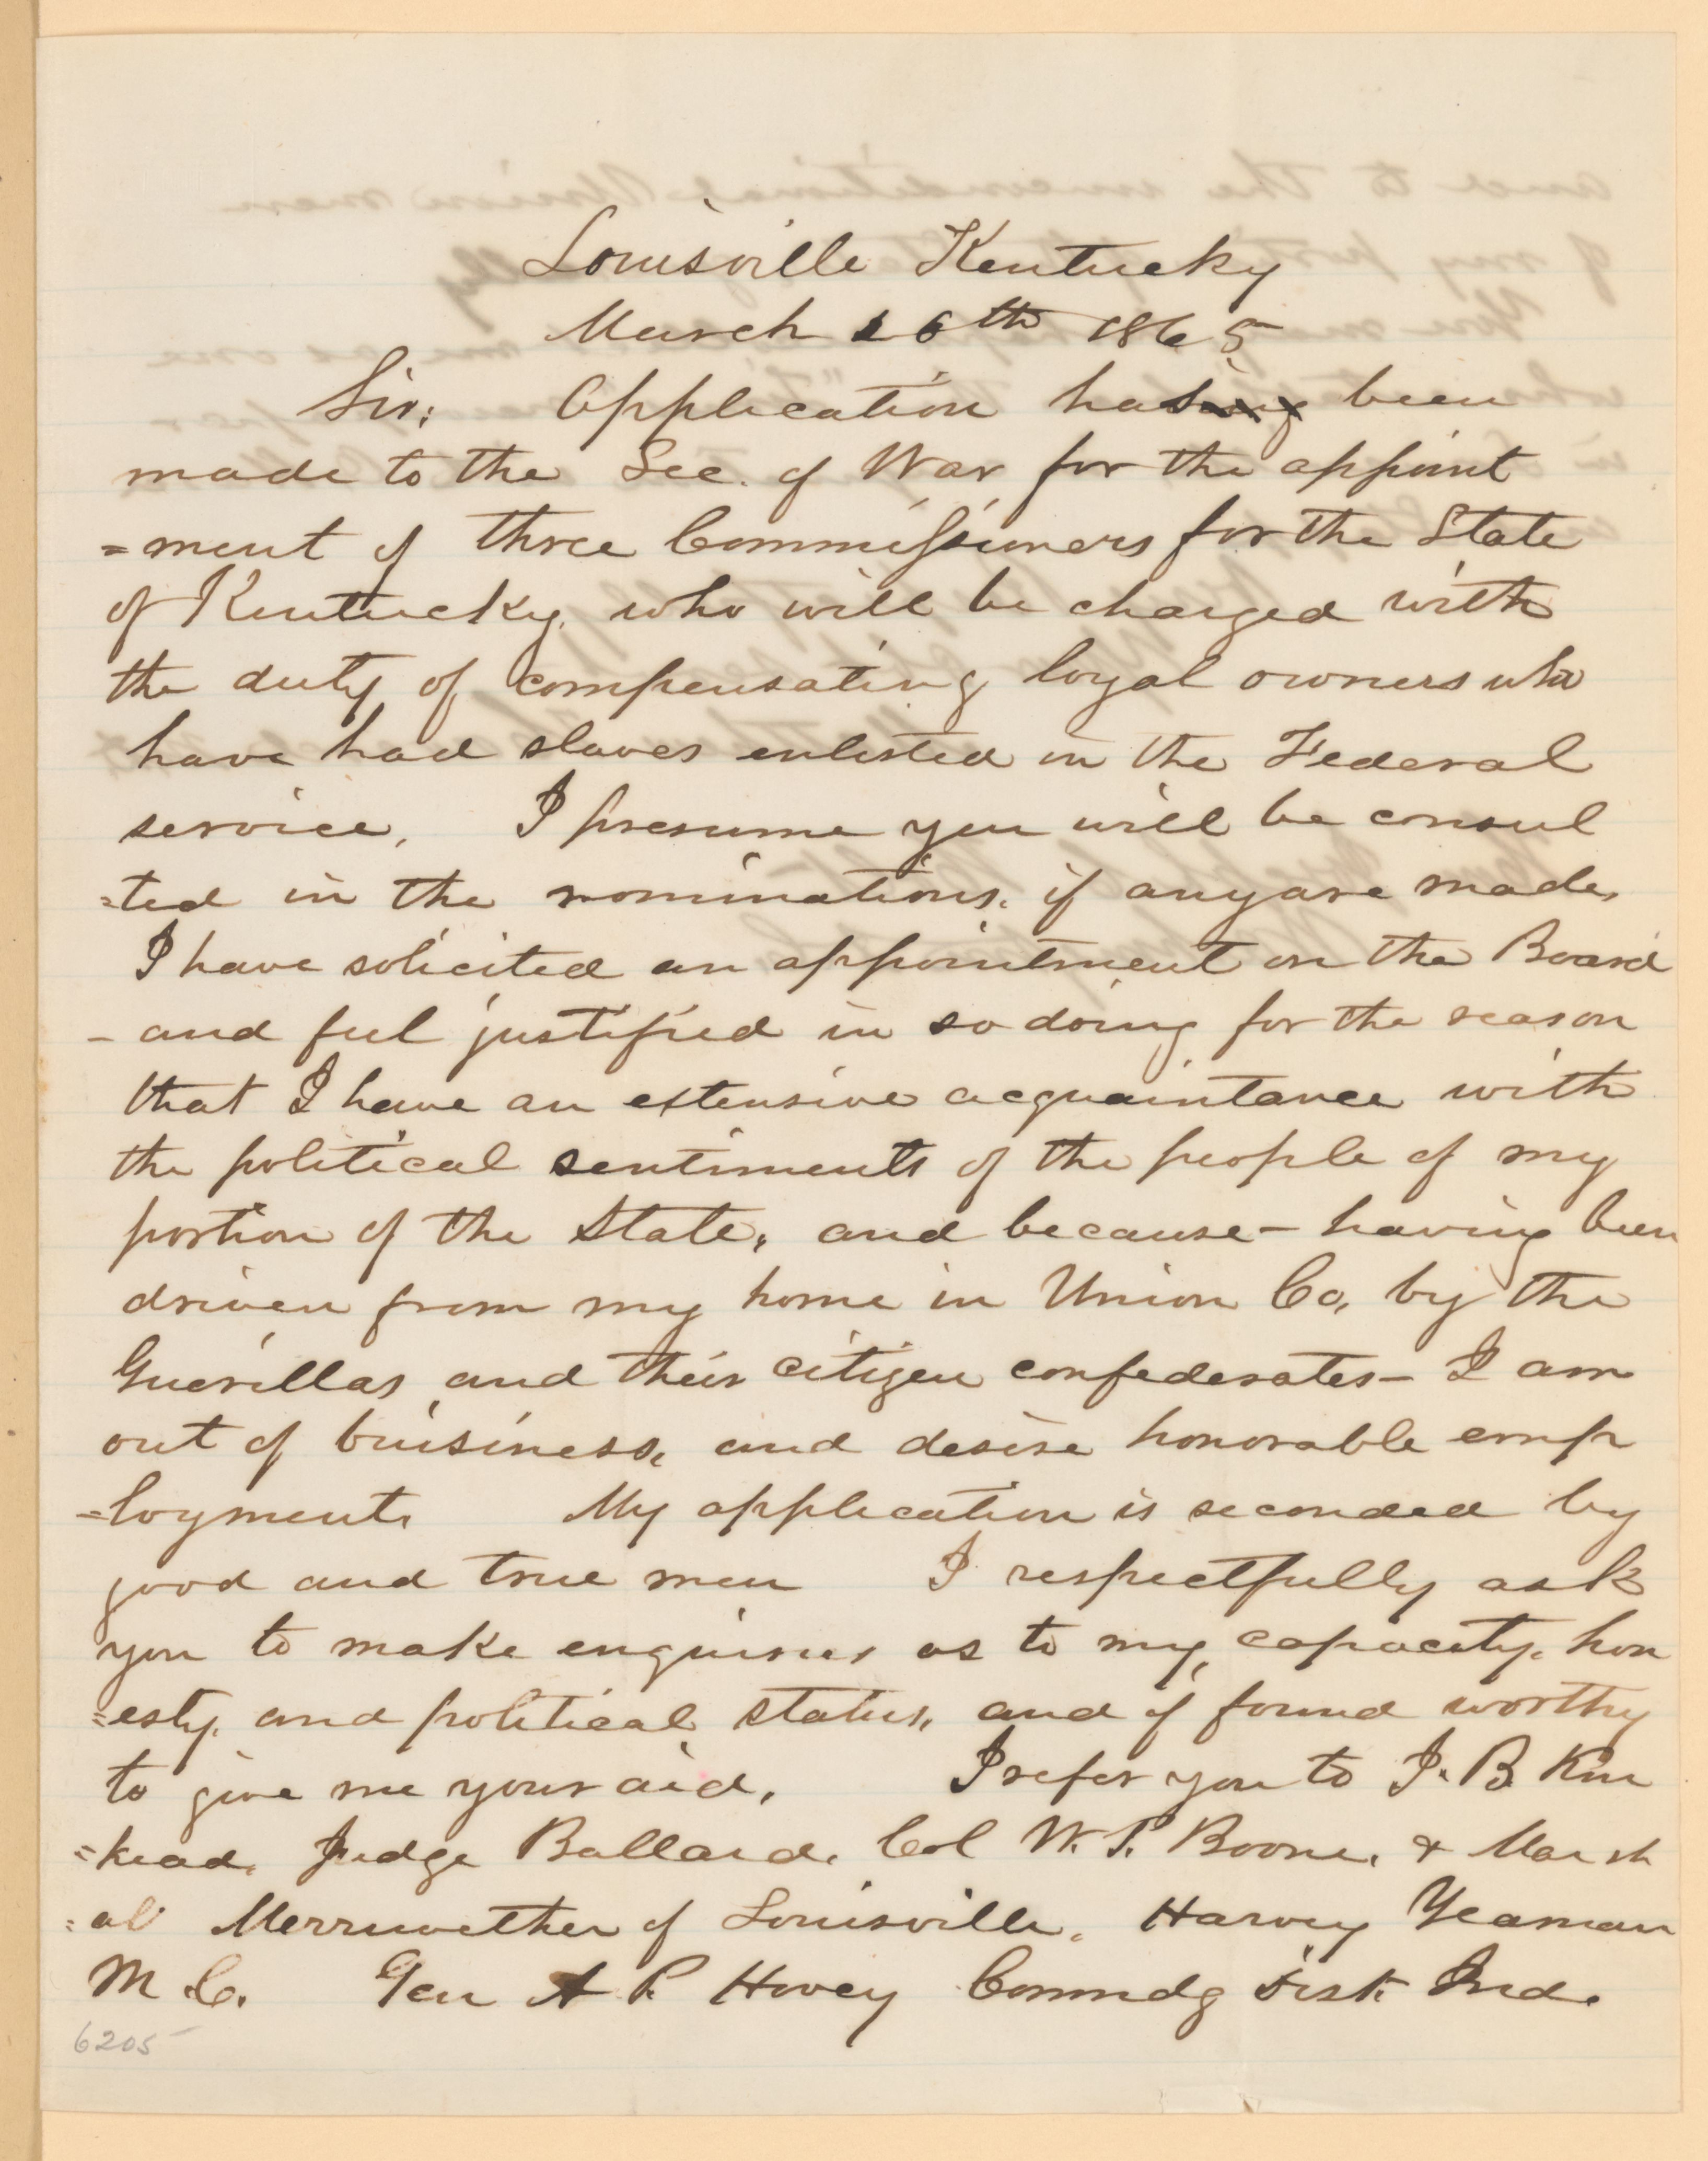 Louisville Kentucky
March 16th 1865
Sir: Application has been
made to the Sec. of War for the appoint
=ment of three Commissioners for the State
of Kentucky, who will be charged with
the duty of compensating loyal owners who
have had slaves enlisted in the Federal
service. I presume you will be consul
=ted in the nominations, if any are made,
I have solicited an appointment on the Board
- and feel justified in so doing for the reason
that I have an extensive acquaintance with
the political sentiments of the people of my
portion of the State, and because - having been
driven from my home in Union Co, by the
Guerillas and their citizen confederates - I am
out of buisiness, and desire honorable emp
=loyment. My application is seconded by
good and true men I respectfully ask
you to make enquiries as to my capacity, hon
=esty, and political status, and if found worthy
to give me your aid. I refer you to J. B. Kin
=kead, Judge Ballard, Col W. P. Boone, & Marsh
=al Merriwether of Louisville, Harvey Yeaman
M. C. Gen A P. Hovey Commdg Dist. Ind.
6205